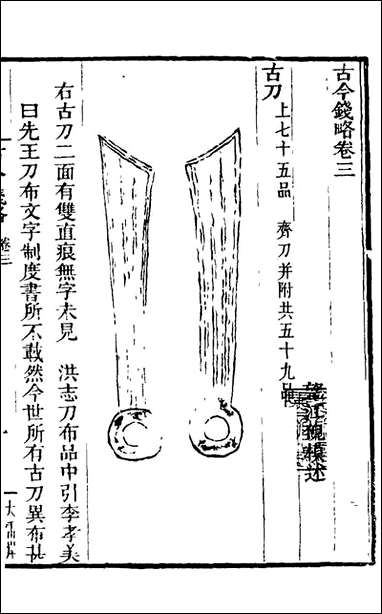 古今錢略卷三
述
古刀
上七十五品　齊刀并附共五十九品
右古刀二面有雙直痕無字未見　洪志刀布品中引李孝美
曰先王刀布文字制度書所不載然今世所有古刀異布甚
卷三